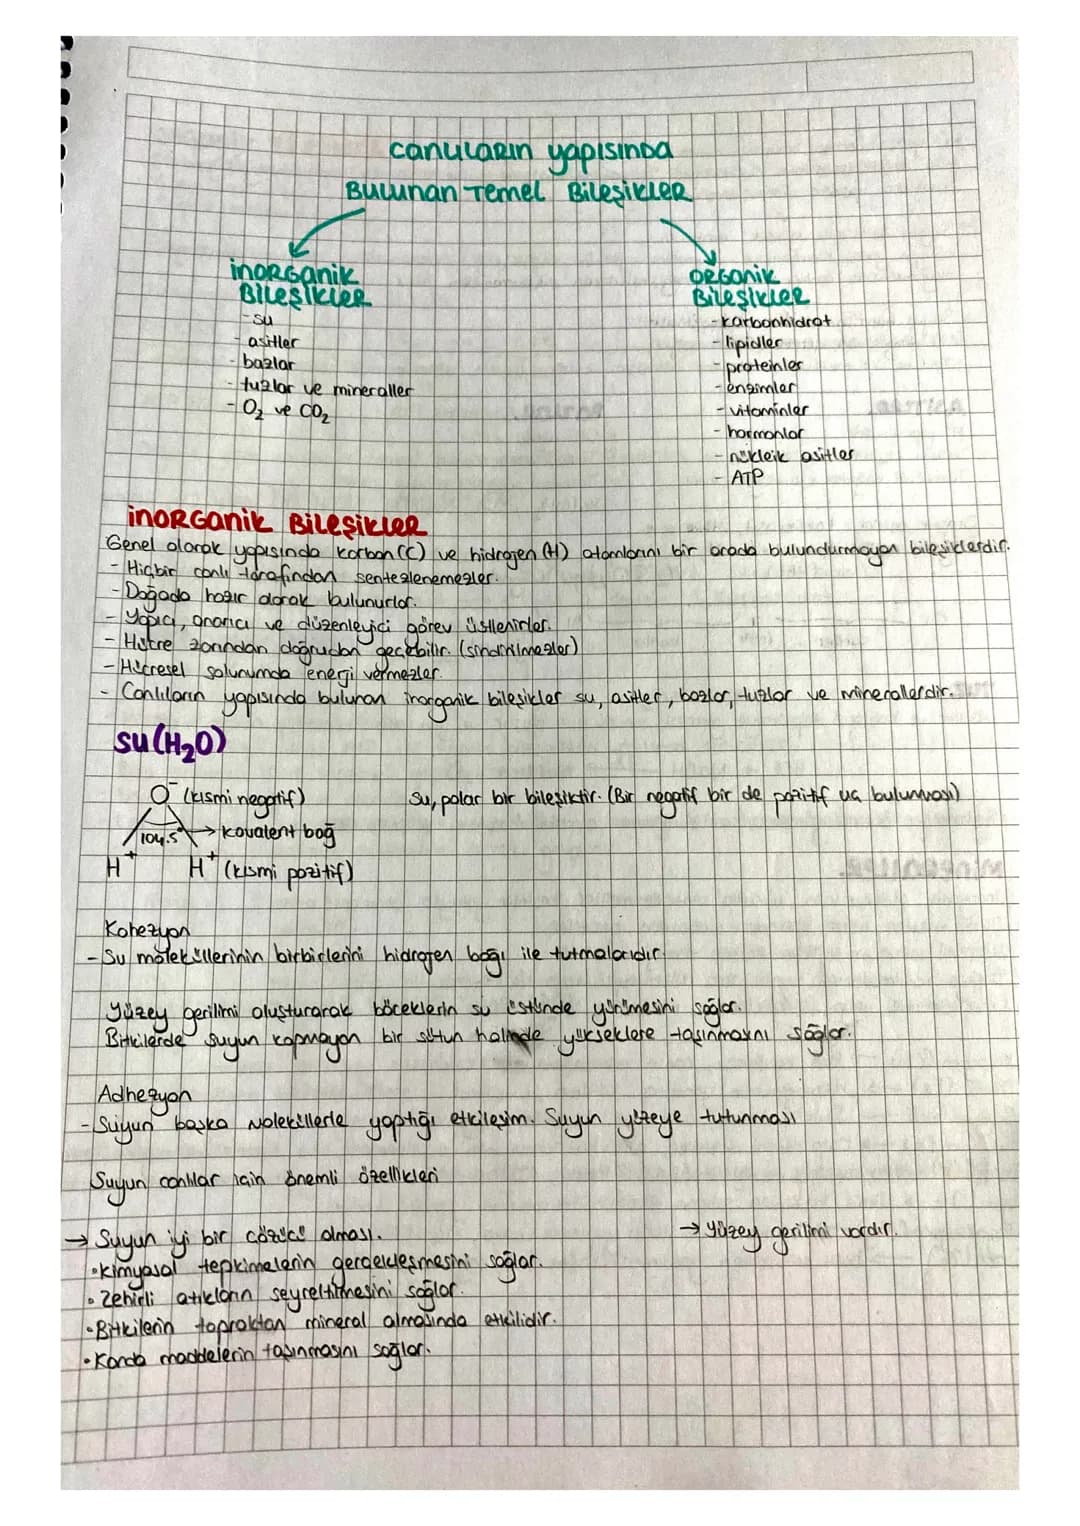 canlıların yapısında
Bulunan Temel Bileşikler
inorganik
Bileşikler
-su
- asitler
- bazlar
- tuzlar ve mineraller
- O₂ ve CO₂
organik
Bileşikler
- karbonhidrat
- lipidler
- proteinler
- enzimler
- vitaminler
- hormonlar
- nükleik asitler
- ATP
inorganik Bileşikler
Genel olarak yapısında karbon (C) ve hidrojen (H) atomlarını bir arada bulundurmayan bileşiklerdir.
- Hiçbir canlı tarafından sentezlenemezler.
- Doğada hazır olarak bulunurlar.
- Yapıcı, onarıcı ve düzenleyici görev üstlenirler.
- Hücre zarından doğrudan geçebilir. (sindirilmezler)
- Hücresel solunumda enerji vermezler.
- Canlıların yapısında bulunan inorganik bileşikler su, asitler, bazlar, tuzlar ve minerallerdir.
su (H₂O)
O⁻ (kısmi negatif)
104.5° → kovalent bağ
H⁺ H⁺ (kısmi pozitif)
Su, polar bir bileşiktir. (Bir negatif bir de pozitif uç bulunması)
Kohezyon
- Su moleküllerinin birbirlerini hidrojen bağı ile tutmalarıdır.
Yüzey gerilimi oluşturarak böceklerin su üstünde yürümesini sağlar.
Bitkilerde suyun kopmayan bir sütun halinde yükseklere taşınmasını sağlar.
Adhezyon
- Suyun başka moleküllerle yaptığı etkileşim. Suyun yüzeye tutunması
Suyun canlılar için önemli özellikleri
→ Suyun iyi bir çözücü olması.
• kimyasal tepkimelerin gerçekleşmesini sağlar.
• Zehirli atıkların seyreltilmesini sağlar.
• Bitkilerin topraktan mineral almasında etkilidir.
• Kanda maddelerin taşınmasını sağlar.
→ Yüzey gerilimi vardır.